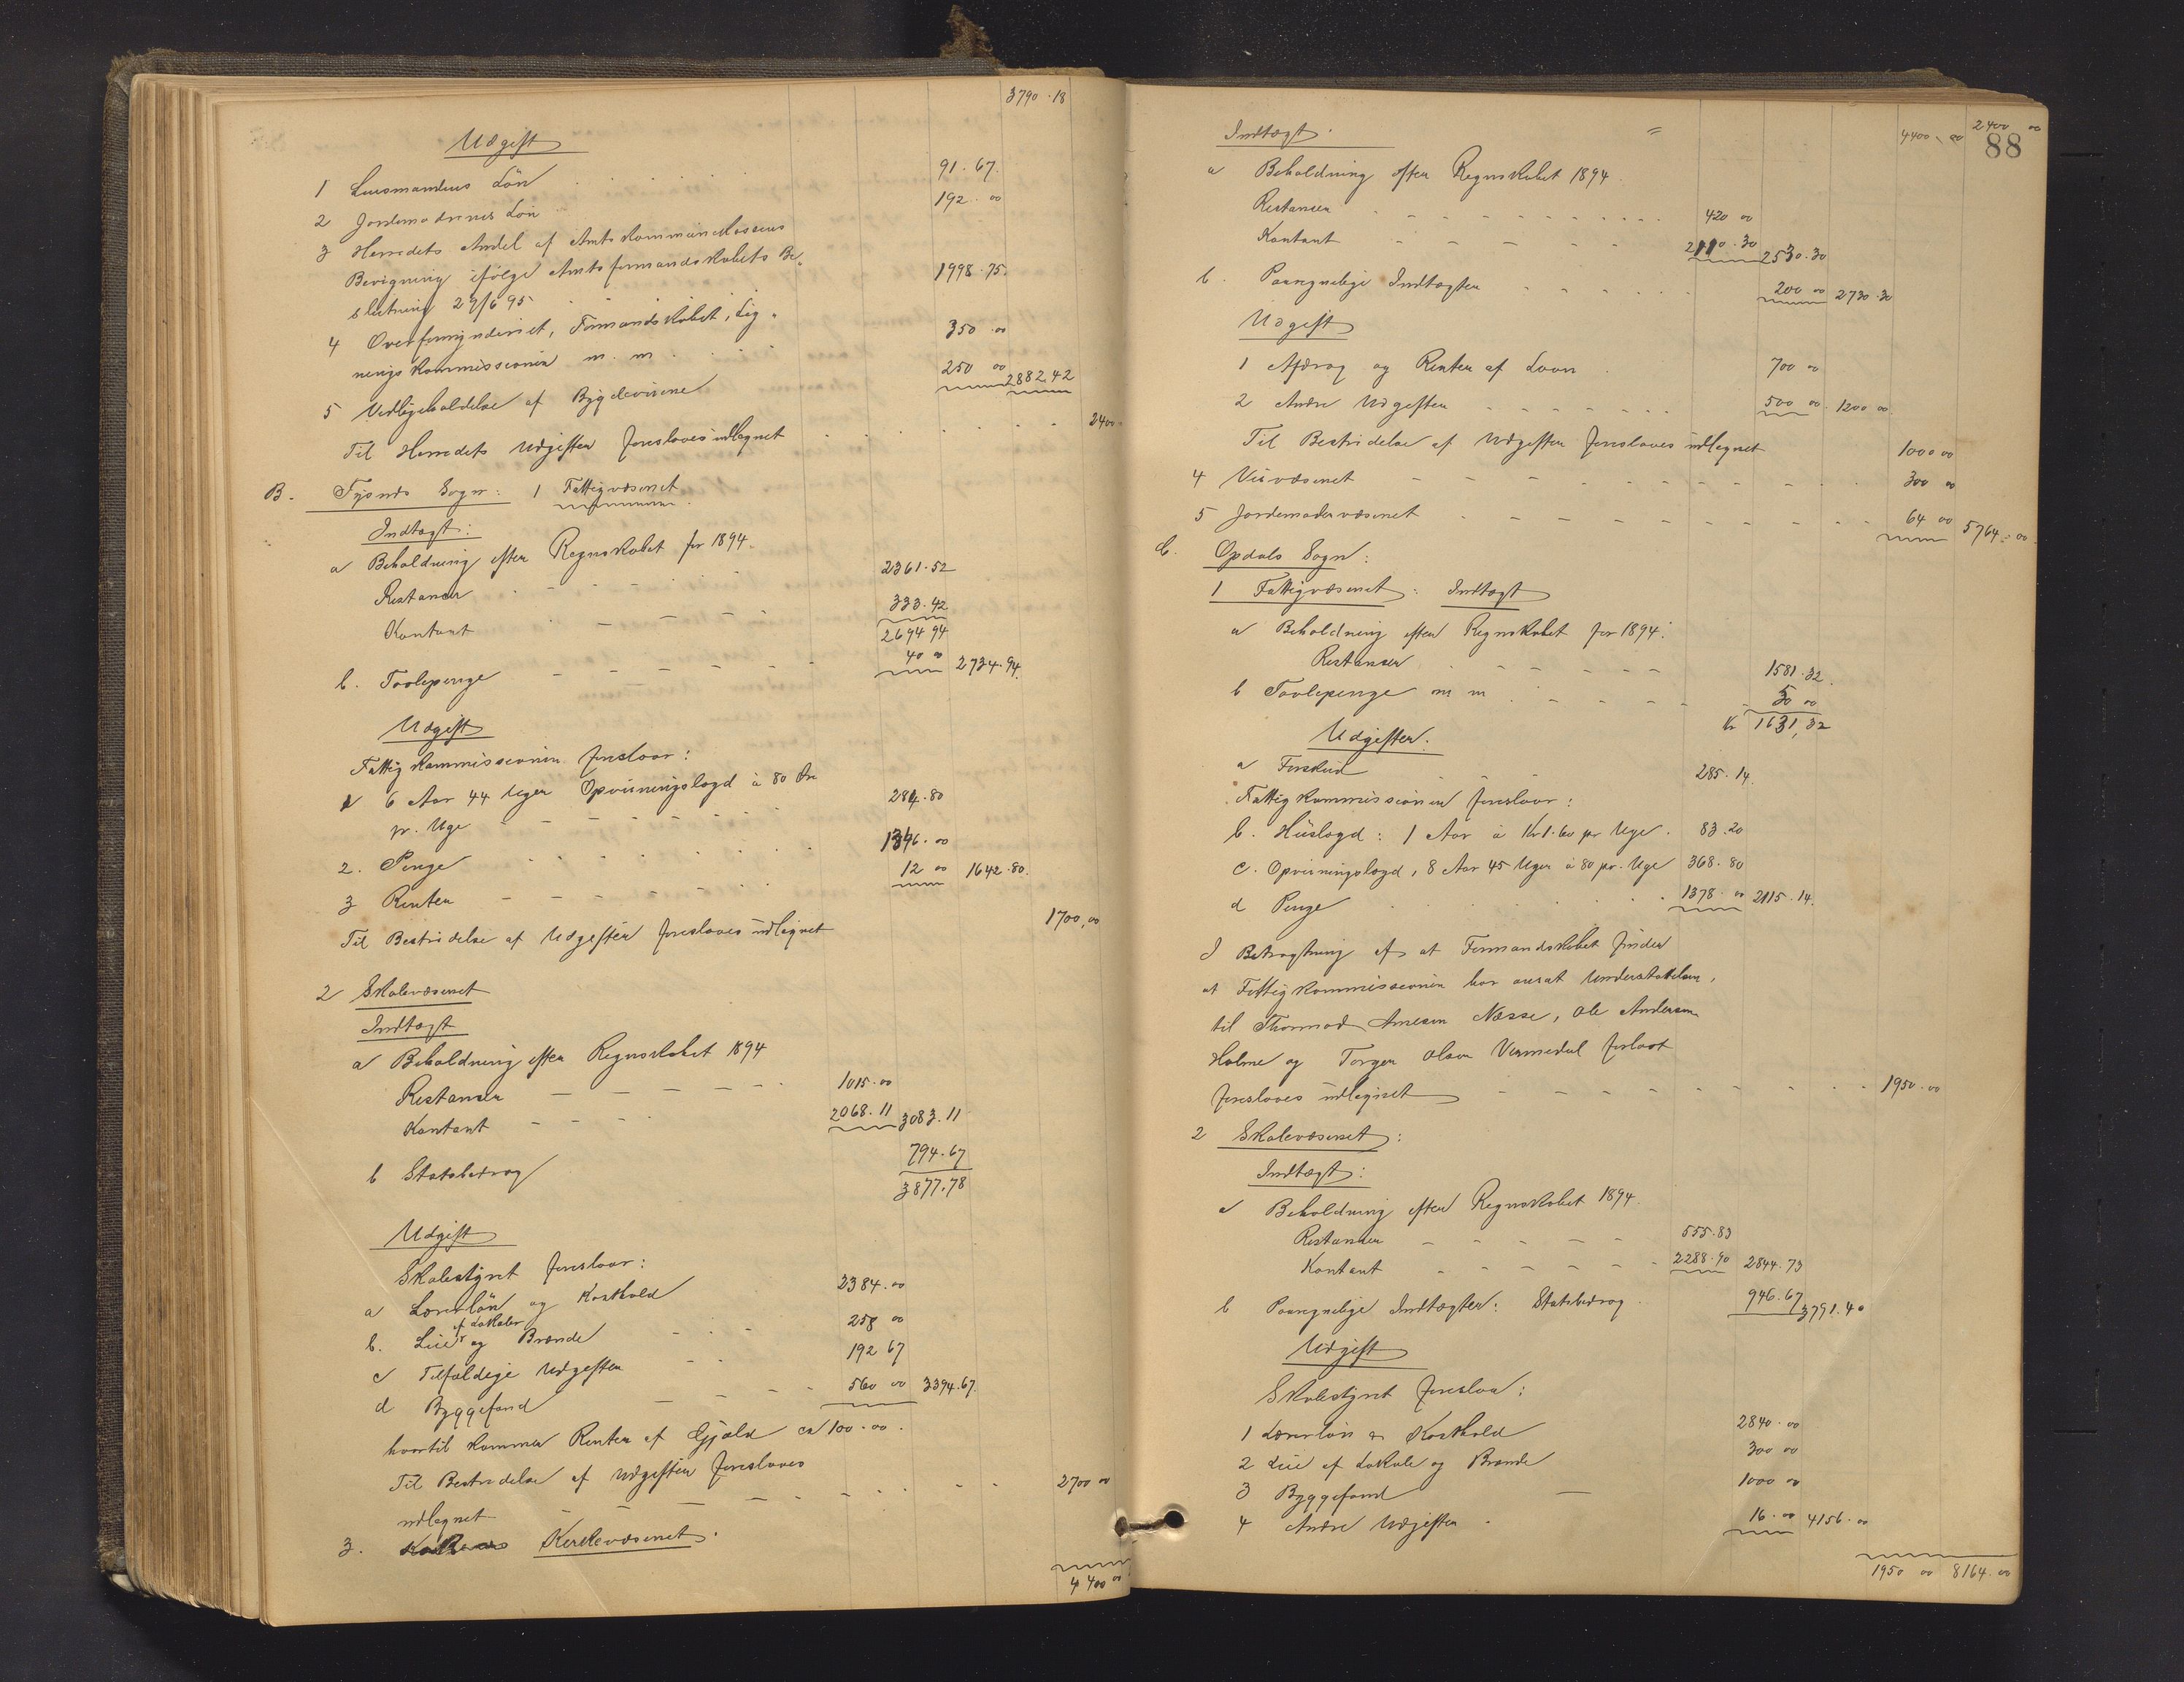 3790.18
Udgift
1 Lensmandens Lön . . . . . . 91.67.
2 Jordemødrenes Lön 192.00
3 Herredets Andel af Amtskommunekassens
Bevigning ifølge Amtsformandskabets Be-
slutning 29/6 95 1998.75.
4 Overformynderiet, Formandskabet, Lig-
ningskommissionen m. m. . . . 350.00
5 Vedligeholdelse af Bygdeveiene 250 00 2882.42
Til Herredets Udgifter foreslaaes udlignet . . . . . . 2400.
B. Tysnes Sogn: 1 Fattigvæsenet
Indtægt:
a Beholdning efter Regnskabet for 1894.
Restancer . - - - - 2361.52
Kontant - - - - 333.42
2694 94
b. Toolepenge - - - - - 40 00 2734.94.
Udgift
Fattigkommissionen foreslaar:
1 6 Aar 44 Uger Opvisningslægd à 80 Øre
pr. Uge - - - - - - 284.80
2. Penge - . . . . . . 1346.00
3 Renter - - - - - - 12 00 1642.80.
Til Bestridelse af Udgifter foreslaaes udlignet 1700,00
2 Skolevæsenet
Indtægt
a Beholdning efter Regnskabet 1894
Restancer - - - - - 1015.00
Kontant - - - - 2068.11 3083.11
b Statsbidrag 794.67
3877.78
Udgift
Skolestyret foreslaar:
a Lærerlön og Kosthold 2384.00
b. Leie af Lokaler og Brænde - - - 258 00
c Tilfældige Udgifter - - 192 67
d Byggefond - - - - 560 00 3394.67.
hvortil kommer Renter af Gjæld ca 100.00.
Til Bestridelse af Udgifter foreslaaes
udlignet - - - - - - - - 2700 00
3. Kirkevæsenet.
4400 00
4400.00 2400 00
88
Indtægt. =
a Beholdning efter Regnskabet 1894.
Restancer - - - - - - - 420 00
Kontant - - - - - 2110.30 2530.30
b. Paaregnelige Indtægter - - - - 200 00 2730.30
Udgift
1 Afdrag og Renter af Laan . 700 00
2 Andre Udgifter - - - - - - 500 00. 1200 00.
Til Bestridelse af Udgifter foreslaaes udlignet 1000 00
4 Veivæsenet - - - - - - - - - 300 00
5 Jordemodervæsenet - - - - - - - - - 64 00 5764.00
C. Opdals Sogn:
1 Fattigvæsenet: Indtægt
a Beholdning efter Regnskabet for 1894:
Restancer - - - - - - 1581.32.
b Toolepenge m m - - - - - 50 00
Kr 1631,32
Udgifter.
a Forskud - - - 285.14.
Fattigkommissionen foreslaar:
b. Huslægd: 1 Aar à Kr 1.60 pr Uge. 83.20
c. Opvisningslægd, 8 Aar 45 Uger à 80 pr. Uge 368.80
d Penge . . . . . . 1378.00 2115.14.
I Betragtning af at Formandskabet finder
at Fattigkommissionen har ansat Understøttelsen,
til Thormod Amesen Næsse, Ole Andersen
Holme og Torger Olsen Vermedal forlavt
foreslaaes udlignet - - - - - - - - 1950.00
2 Skolevæsenet:
Indtægt:
a Beholdning efter Regnskabet 1894.
Restancer - - - - - 555.83
Kontant - - - - - 2288.90 2844.73
b Paaregnelige Indtægter: Statsbidrag. 946.67 3791.40
Udgift
Skolestyret foreslaar:
1 Lærerlön og Kosthold 2840.00
2 Leie af Lokale og Brænde 300 00
3 Byggefond - 1000 00
4 Andre Udgifter - 16.00 4156.00
1950 00 8164.00